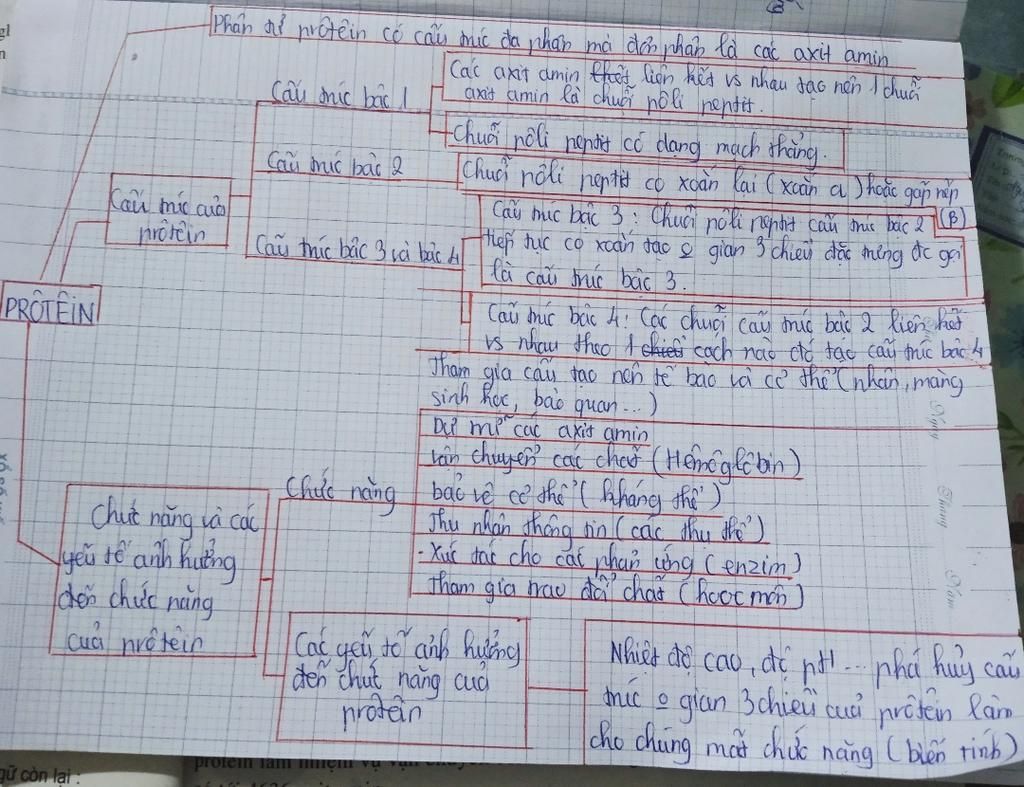 Phân tử prôtêin có cấu trúc đa phân mà đơn phân là các axit amin
Cấu trúc bậc 1
Các axit amin liên kết vs nhau tạo nên 1 chuỗi
axit amin là chuỗi pôli peptit.
Chuỗi pôli peptit có dạng mạch thẳng.
Cấu trúc bậc 2
Chuỗi pôli peptit co xoắn lại (xoắn α) hoặc gấp nếp
(β)
Cấu trúc của
prôtêin
Cấu trúc bậc 3 và bậc 4
Cấu trúc bậc 3: Chuỗi pôli peptit cấu trúc bậc 2
tiếp tục co xoắn tạo o gian 3 chiều đặc trưng đc gọi
là cấu trúc bậc 3.
PRÔTÊIN
Cấu trúc bậc 4: Các chuỗi cấu trúc bậc 2 liên kết
vs nhau theo 1 cách nào đó tạo cấu trúc bậc 4
Tham gia cấu tạo nên tế bào và cơ thể (nhân, màng
sinh học, bào quan...)
Dự trữ các axit amin
Vận chuyển các chất (Hêmôglôbin)
Chức năng
bảo vệ cơ thể (kháng thể)
Thu nhận thông tin (các thụ thể)
- Xúc tác cho các phản ứng (enzim)
Tham gia trao đổi chất (hoocmôn)
Chức năng và các
yếu tố ảnh hưởng
đến chức năng
của prôtêin
Các yếu tố ảnh hưởng
đến chức năng của
prôtêin
Nhiệt độ cao, độ pH ... phá hủy cấu
trúc o gian 3 chiều của prôtêin làm
cho chúng mất chức năng (biến tính)
Ngày Tháng Năm
gữ còn lại :